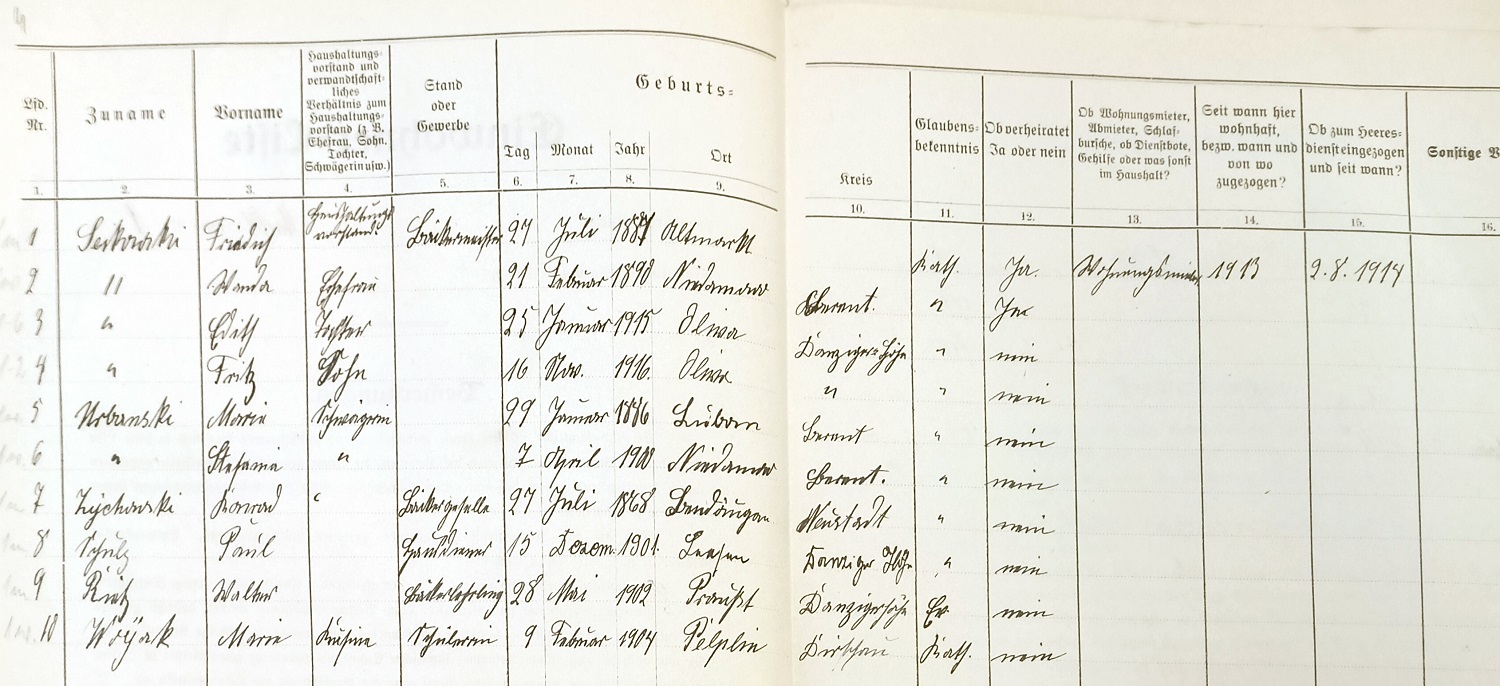 Lfd. Nr. Zuname Vorname Haushaltungsvorstand und verwandtschaftliches Verhältnis zum Haushaltungsvorstand (z. B. Ehefrau, Sohn, Tochter, Schwägerin usw.) Stand oder Gewerbe Geburts= Tag Monat Jahr Ort Kreis Glaubensbekenntnis Ob verheiratet Ja oder nein Ob Wohnungsmieter, Abmieter, Schlafbursche, ob Dienstbote, Gehilfe oder was sonst im Haushalt? Seit wann hier wohnhaft, bezw. wann und von wo zugezogen? Ob zum Heeresdienst eingezogen und seit wann? Sonstige
1. 2. 3. 4. 5. 6. 7. 8. 9. 10. 11. 12. 13. 14. 15. 16.
1 Friedich Haushaltungsvorstand. Bäckermeister 27 Juli Altmarkt Kath. Ja. Wohnungsmieter 1913 2.8.1914
2 " Wanda Ehefrau 21 Februar 1890 Niedamowo Berent. " Ja
3 " Edith Tochter 25 Januar 1915 Oliva Danziger=Höhe " nein
4 " Fritz Sohn 16 Nov. 1916. Oliva " " nein
5 Urbanski Marie Schwägerin 29 Januar 1886 Lubom Berent " nein
6 " Stefanie " 7 April 1900 Niedamowo Berent. " nein
7 Zychowski Konrad " Bäckergeselle 27 Juli 1868 Neustadt " nein
8 Schulz Paul Hausdiener 15 Dezem. 1901. Leesen Danziger Höhe " nein
9 Rietz Walter Bäckerlehrling 28 Mai 1902 Praußt Danzigerhöhe Ev nein
10 Woÿak Marie Kusine Schülerin 9 Februar 1904 Pelplin Dirschau Kath. nein